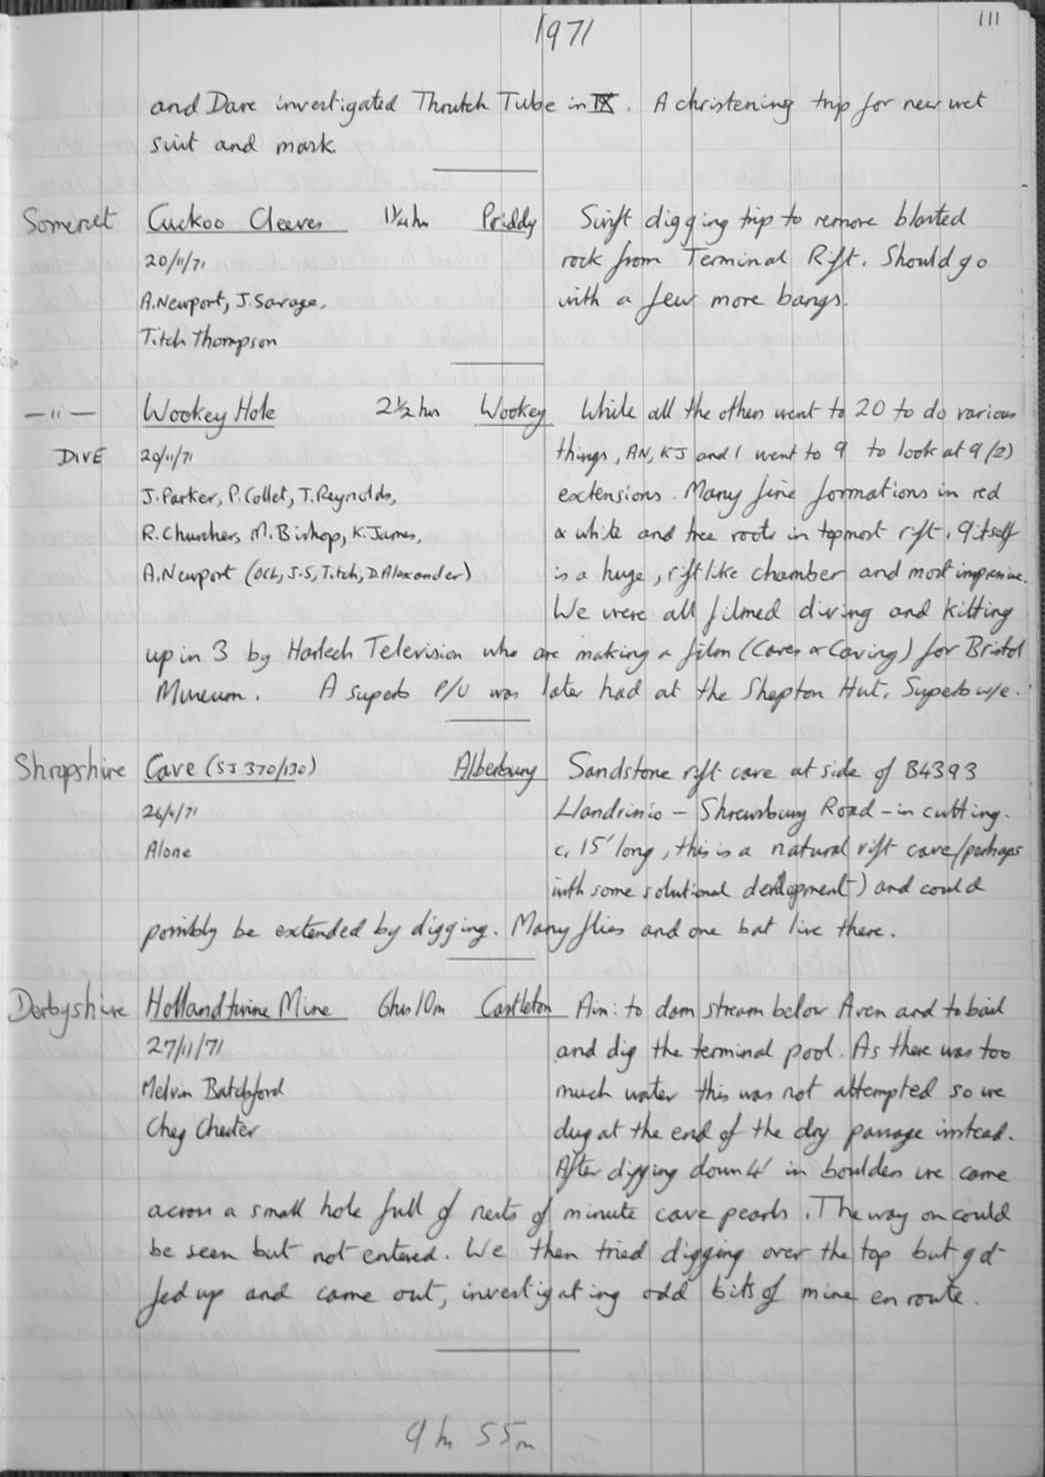 1971
111
and Dave investigated Thrutch Tube in IX. A christening trip for new wet
suit and mask.
Somerset Cuckoo Cleeves 1¼hr Priddy Swift digging trip to remove blasted
20/11/71 rock from Terminal Rift. Should go
A.Newport, J.Savage, with a few more bangs.
Titch Thompson
—"— Wookey Hole 2½hrs Wookey While all the others went to 20 to do various
DIVE 20/11/71 things, AN, KJ and I went to 9 to look at 9(2)
J.Parker, P.Collet, T.Reynolds, extensions. Many fine formations in red
R.Churcher, M.Bishop, K.James, & white and tree roots in topmost rift. 9 itself
A.Newport (OCL, J.S, Titch, D.Alexander) is a huge, riftlike chamber and most impressive.
We were all filmed diving and kitting
up in 3 by Harlech Television who are making a film (Caves & Caving) for Bristol
Museum. A superb P/U was later had at the Shepton Hut. Superb w/e.
Shropshire Cave (SJ 370/130) Alberbury Sandstone rift cave at side of B4393
Llandrinio – Shrewsbury Road – in cutting.
Alone c. 15' long, this is a natural rift cave (perhaps
with some solutional development) and could
possibly be extended by digging. Many flies and one bat live there.
Derbyshire Hollandtwine Mine 6hrs 10m Castleton Aim: to dam stream below Aven and to bail
27/11/71 and dig the terminal pool. As there was too
Melvin Batchford much water this was not attempted so we
Cheg Chester dug at the end of the dry passage instead.
After digging down 4' in boulders we came
across a small hole full of nests of minute cave pearls. The way on could
be seen but not entered. We then tried digging over the top but got
fed up and came out, investigating odd bits of mine en route.
9h 55m